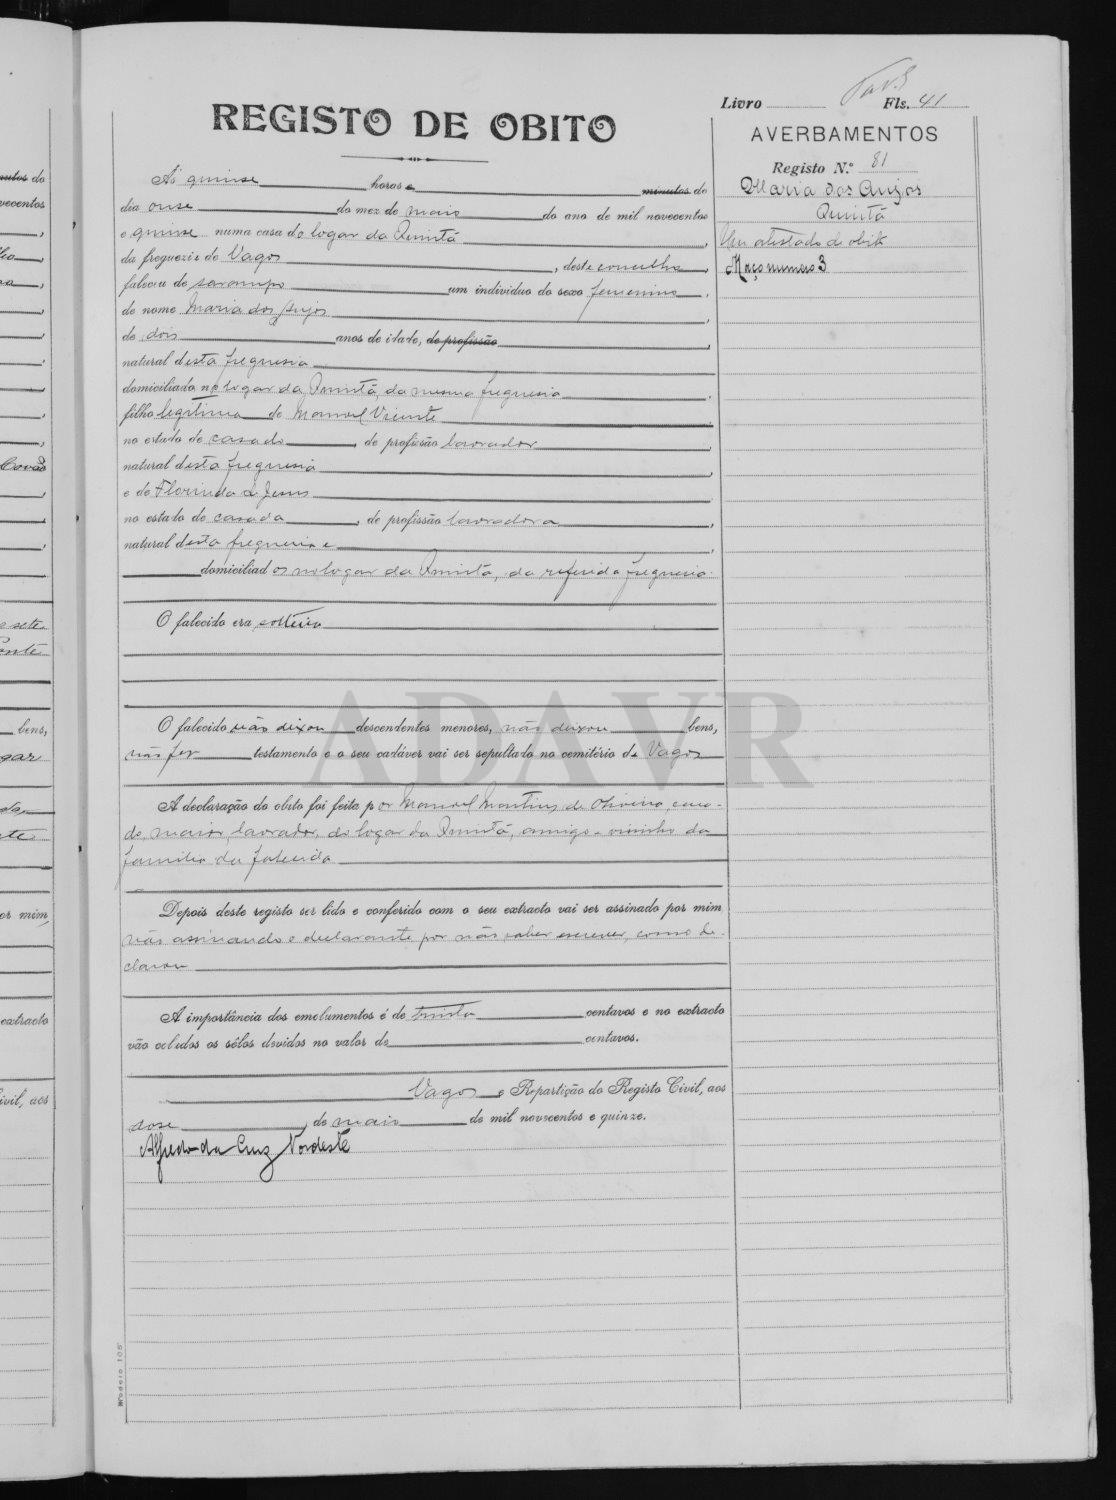 Livro Fls. 41
REGISTO DE OBITO
AVERBAMENTOS
Registo N.º 81
Maria dos Anjos
Quintã
Um atestado de obito
Maço numero 3
Ás quinse horas e minutos do
dia onse do mez de maio do ano de mil novecentos
e quinse numa casa do logar da Quintã,
da freguezia de Vagos, deste concelho,
faleceu de sarampo um individuo do sexo femenino,
de nome Maria dos Anjos,
de dois anos de idade, de profissão,
natural desta freguesia
domiciliada no logar da Quintã, da mesma freguesia,
filho legitima de Manoel Vicente,
no estado de casado, de profissão lavrador,
natural desta freguesia
e de Florinda de Jesus,
no estado de casada, de profissão lavradora,
natural desta freguesia e
domiciliados no logar da Quintã, da referida freguesia.
O falecido era solteira
O falecido não deixou descendentes menores, não deixou bens,
não fez testamento e o seu cadáver vai ser sepultado no cemitério de Vagos
ADAVR
A declaração do obito foi feita por Manoel Martins de Oliveira, casa-
do, maior, lavrador, do logar da Quintã, amigo e visinho da
familia da falecida
Depois deste registo ser lido e conferido com o seu extracto vai ser assinado por mim
não assinando o declarante por não saber escrever, como de-
clarou
A importância dos emolumentos é de trinta centavos e no extracto
vão colados os sêlos devidos no valor de centavos.
Vagos e Repartição do Registo Civil, aos
dose, de maio de mil novecentos e quinze.
Alfredo da Cruz Nordeste
Modelo 105